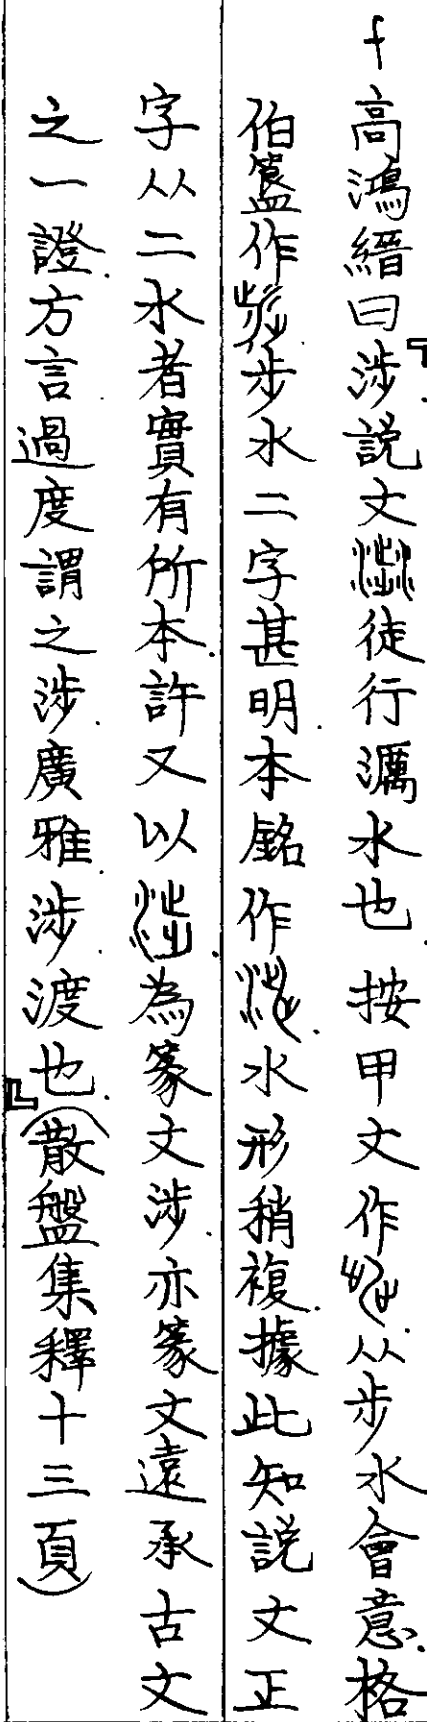 高鴻縉曰「涉說文徒行濿水也按甲文作从步水會意格
伯簋作步水二字甚明本銘作水形稍複據此知說文正
字从二水者實有所本許又以為篆文涉亦篆文遠承古文
之一證方言過度謂之涉廣雅涉渡也」(散盤集釋十三頁)